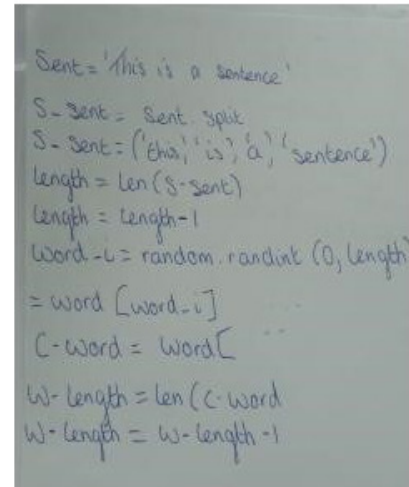 Sent = 'This is a sentence'
S-sent = Sent. Split
S-sent = ('this', 'is', 'a', 'sentence')
length = len(S-sent)
length = length-1
word-i = random.randint (0, length)
= word [word-i]
C-word = word[
W-length = len(c-word
W-length = W-length -1